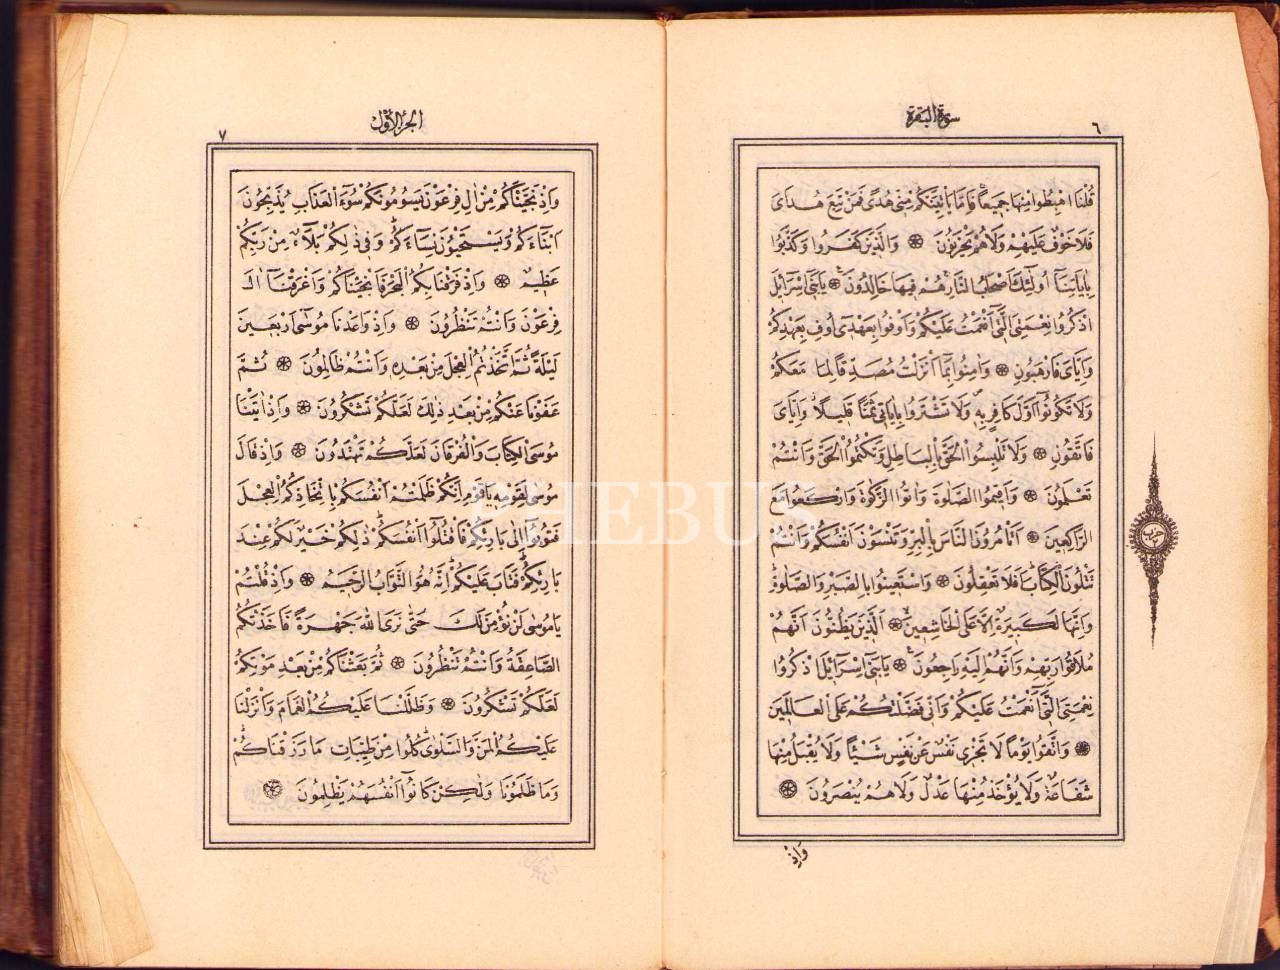 سورة البقرة
٦
قُلْنَا اهْبِطُوا مِنْهَا جَمِيعًا فَاِمَّا يَأْتِيَنَّكُمْ مِنِّى هُدًى فَمَنْ تَبِعَ هُدَاىَ
فَلَا خَوْفٌ عَلَيْهِمْ وَلَاهُمْ يَحْزَنُونَ ۞ وَالَّذِينَ كَفَرُوا وَكَذَّبُوا
بِاٰيَاتِنَآ اُولٰٓئِكَ اَصْحَابُ النَّارِ هُمْ فِيهَا خَالِدُونَ ۞ يَابَنِىٓ اِسْرَآئِلَ
اذْكُرُوا نِعْمَتِىَ الَّتِىٓ اَنْعَمْتُ عَلَيْكُمْ وَاَوْفُوا بِعَهْدِىٓ اُوفِ بِعَهْدِكُمْ
وَاِيَّاىَ فَارْهَبُونِ ۞ وَاٰمِنُوا بِمَآ اَنْزَلْتُ مُصَدِّقًا لِمَا مَعَكُمْ
وَلَا تَكُونُوٓا اَوَّلَ كَافِرٍ بِهٖ وَلَا تَشْتَرُوا بِاٰيَاتِى ثَمَنًا قَلِيلًا وَاِيَّاىَ
فَاتَّقُونِ ۞ وَلَا تَلْبِسُوا الْحَقَّ بِالْبَاطِلِ وَتَكْتُمُوا الْحَقَّ وَاَنْتُمْ
تَعْلَمُونَ ۞ وَاَقِيمُوا الصَّلٰوةَ وَاٰتُوا الزَّكٰوةَ وَارْكَعُوا مَعَ
الرَّاكِعِينَ ۞ اَتَأْمُرُونَ النَّاسَ بِالْبِرِّ وَتَنْسَوْنَ اَنْفُسَكُمْ وَاَنْتُمْ
تَتْلُونَ الْكِتَابَ اَفَلَا تَعْقِلُونَ ۞ وَاسْتَعِينُوا بِالصَّبْرِ وَالصَّلٰوةِ
وَاِنَّهَا لَكَبِيرَةٌ اِلَّا عَلَى الْخَاشِعِينَ ۞ اَلَّذِينَ يَظُنُّونَ اَنَّهُمْ
مُلَاقُوا رَبِّهِمْ وَاَنَّهُمْ اِلَيْهِ رَاجِعُونَ ۞ يَابَنِىٓ اِسْرَآئِلَ اذْكُرُوا
نِعْمَتِىَ الَّتِىٓ اَنْعَمْتُ عَلَيْكُمْ وَاَنِّى فَضَّلْتُكُمْ عَلَى الْعَالَمِينَ
۞ وَاتَّقُوا يَوْمًا لَا تَجْزِى نَفْسٌ عَنْ نَفْسٍ شَيْئًا وَلَا يُقْبَلُ مِنْهَا
شَفَاعَةٌ وَلَا يُؤْخَذُ مِنْهَا عَدْلٌ وَلَاهُمْ يُنْصَرُونَ ۞
وَاِذْ
حزب
الجزء الاول
٧
وَاِذْ نَجَّيْنَاكُمْ مِنْ اٰلِ فِرْعَوْنَ يَسُومُونَكُمْ سُوٓءَ الْعَذَابِ يُذَبِّحُونَ
اَبْنَآءَكُمْ وَيَسْتَحْيُونَ نِسَآءَكُمْ وَفِى ذٰلِكُمْ بَلَآءٌ مِنْ رَبِّكُمْ
عَظِيمٌ ۞ وَاِذْ فَرَقْنَا بِكُمُ الْبَحْرَ فَاَنْجَيْنَاكُمْ وَاَغْرَقْنَآ اٰلَ
فِرْعَوْنَ وَاَنْتُمْ تَنْظُرُونَ ۞ وَاِذْ وَاعَدْنَا مُوسٰٓى اَرْبَعِينَ
لَيْلَةً ثُمَّ اتَّخَذْتُمُ الْعِجْلَ مِنْ بَعْدِهٖ وَاَنْتُمْ ظَالِمُونَ ۞ ثُمَّ
عَفَوْنَا عَنْكُمْ مِنْ بَعْدِ ذٰلِكَ لَعَلَّكُمْ تَشْكُرُونَ ۞ وَاِذْ اٰتَيْنَا
مُوسَى الْكِتَابَ وَالْفُرْقَانَ لَعَلَّكُمْ تَهْتَدُونَ ۞ وَاِذْ قَالَ
مُوسٰى لِقَوْمِهٖ يَاقَوْمِ اِنَّكُمْ ظَلَمْتُمْ اَنْفُسَكُمْ بِاتِّخَاذِكُمُ الْعِجْلَ
فَتُوبُوٓا اِلٰى بَارِئِكُمْ فَاقْتُلُوٓا اَنْفُسَكُمْ ذٰلِكُمْ خَيْرٌ لَكُمْ عِنْدَ
بَارِئِكُمْ فَتَابَ عَلَيْكُمْ اِنَّهُ هُوَ التَّوَّابُ الرَّحِيمُ ۞ وَاِذْ قُلْتُمْ
يَامُوسٰى لَنْ نُؤْمِنَ لَكَ حَتّٰى نَرَى اللّٰهَ جَهْرَةً فَاَخَذَتْكُمُ
الصَّاعِقَةُ وَاَنْتُمْ تَنْظُرُونَ ۞ ثُمَّ بَعَثْنَاكُمْ مِنْ بَعْدِ مَوْتِكُمْ
لَعَلَّكُمْ تَشْكُرُونَ ۞ وَظَلَّلْنَا عَلَيْكُمُ الْغَمَامَ وَاَنْزَلْنَا
عَلَيْكُمُ الْمَنَّ وَالسَّلْوٰى كُلُوا مِنْ طَيِّبَاتِ مَا رَزَقْنَاكُمْ
وَمَا ظَلَمُونَا وَلٰكِنْ كَانُوٓا اَنْفُسَهُمْ يَظْلِمُونَ ۞
PHEBUS